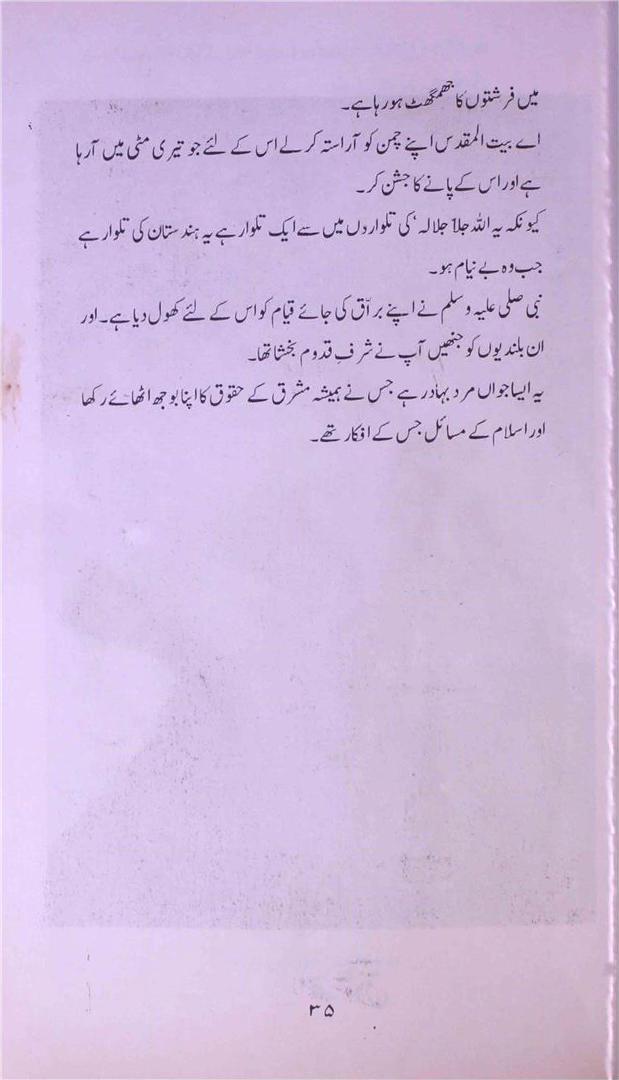 میں فرشتوں کا جھمگھٹ ہو رہا ہے۔
اے بیت المقدس اپنے چمن کو آراستہ کر لے اس کے لئے جو تیری مٹی میں آ رہا
ہے اور اس کے پانے کا جشن کر۔
کیونکہ یہ اللہ جلا جلالہ‘ کی تلواروں میں سے ایک تلوار ہے یہ ہندستان کی تلوار ہے
جب وہ بے نیام ہو۔
نبی صلی علیہ وسلم نے اپنے براّق کی جائے قیام کو اس کے لئے کھول دیا ہے۔ اور
ان بلندیوں کو جنھیں آپ نے شرفِ قدوم بخشا تھا۔
یہ ایسا جواں مرد بہادر ہے جس نے ہمیشہ مشرق کے حقوق کا اپنا بوجھ اٹھائے رکھا
اور اسلام کے مسائل جس کے افکار تھے۔
۳۵